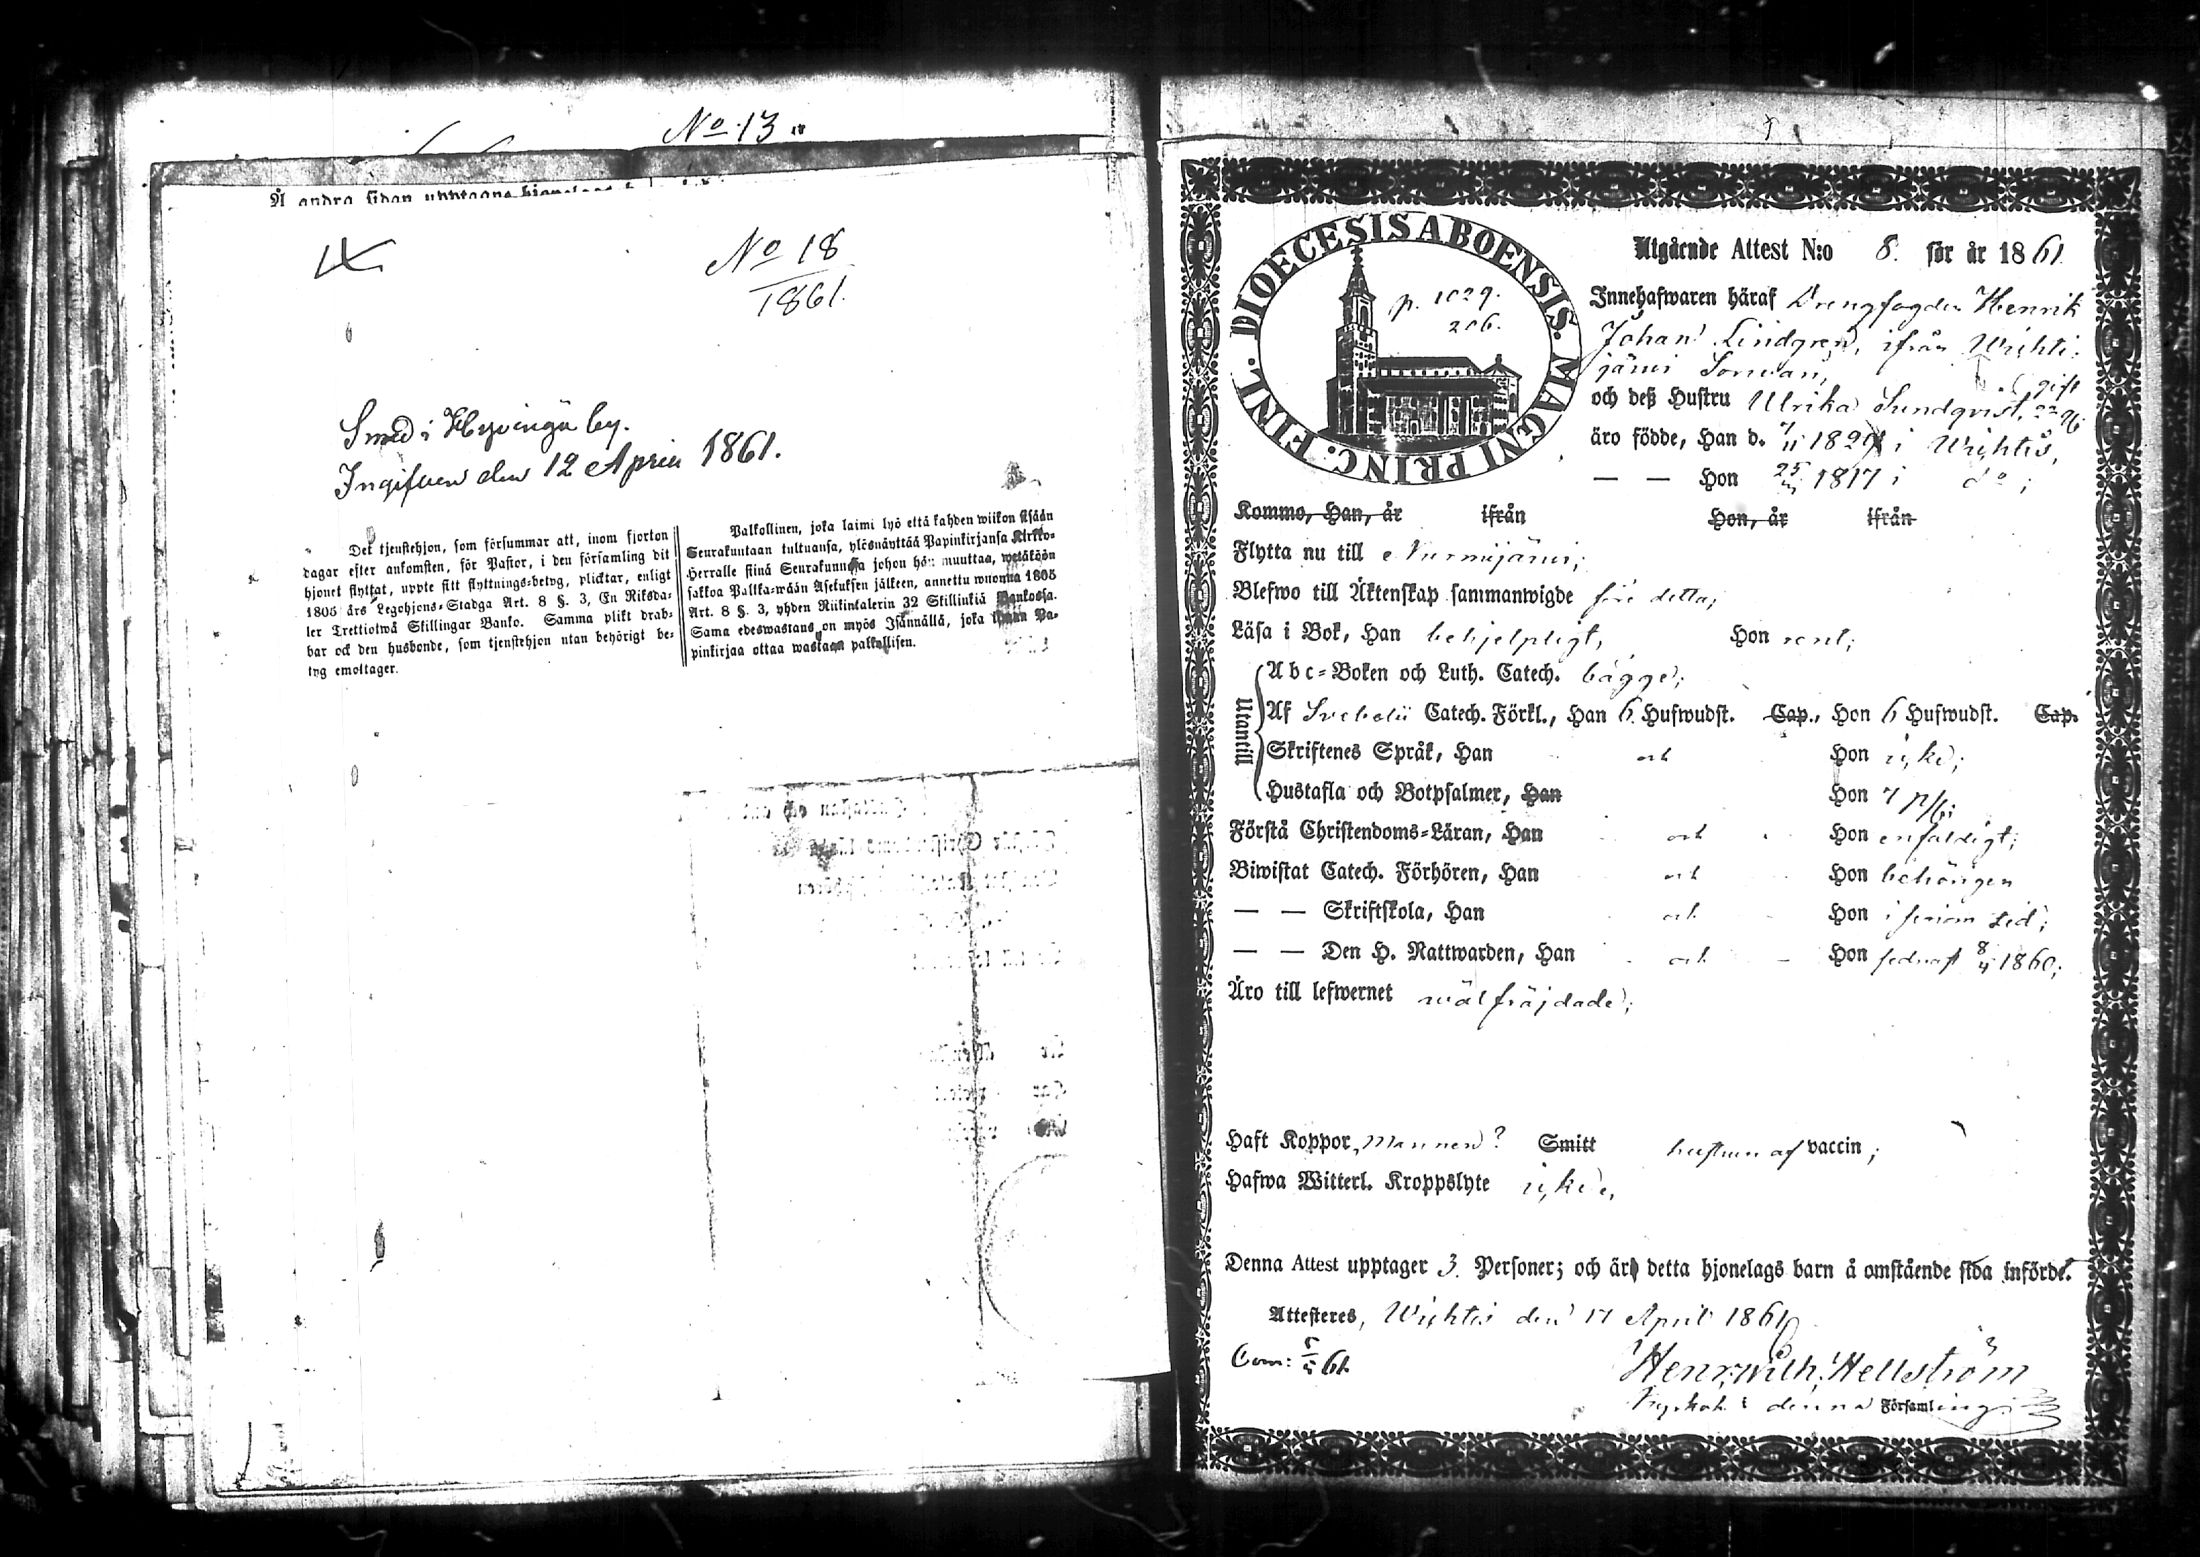 No 13
Å andra sidan upptagne hjonelags
No 18
1861.
Smed i Hyvingä by.
Ingifven den 12 April 1861.
Det tjenstehjon, som försummar att, inom fjorton
dagar efter ankomsten, för Pastor, i den församling dit
hjonet flyttat, uppte sitt flyttnings-betyg, plicktar, enligt
1805 års Legohjons-Stadga Art. 8 §. 3, En Riksda-
ler Trettiotwå Skillingar Banko. Samma plikt drab-
bar ock den husbonde, som tjenstehjon utan behörigt be-
tyg emottager.
Palkollinen, joka laimi lyö että kahden wiikon sisään
Seurakuntaan tultuansa, ylösnäyttää Papinkirjansa Kirkko-
Herralle siinä Seurakunnassa johon hän muuttaa, wetäköön
sakkoa Palkka-wään Asetuksen jälkeen, annettu wuonna 1805
Art. 8 §. 3, yhden Riikintalerin 32 Skillinkiä Bankossa.
Sama edeswastaus on myös Isännällä, joka ilman Pa-
pinkirjaa ottaa wastaan palkollisen.
DIOECESIS ABOENSIS. MAGNI PRINC. FINL.
p. 1029.
206.
Utgående Attest N:o 8. för år 1861
Innehafwaren häraf Drengfogden Henrik
Johan Lindgren, ifrån Wichti
järvi
och deß Hustru Ulrika Sundqvist, gift
äro födde, Han d. i Wichtis,
— — Hon 1817 i do;
Kommo, Han, år ifrån Hon, år ifrån
Flytta nu till Nurmijärvi;
Blefwo till Äktenskap sammanwigde före detta;
Läsa i Bok, Han behjelpligt, Hon rent;
Utantill
Abc-Boken och Luth. Catech. bägge;
Af Svebelii Catech. Förkl., Han 6 Hufwudst. Cap., Hon 6 Hufwudst. Cap.
Skriftenes Språk, Han och Hon icke;
Hustafla och Botpsalmer, Han Hon 7 ps;
Förstå Christendoms-Läran, Han och Hon enfaldigt;
Biwistat Catech. Förhören, Han och Hon behörigen
— — Skriftskola, Han och Hon i sinom tid;
— — Den H. Nattwarden, Han och Hon sednast 1860;
Äro till lefwernet wälfräjdade;
Haft Koppor, Mannen? Smitt hustrun af vaccin;
Hafwa Witterl. Kroppslyte icke,
Denna Attest upptager 3. Personer; och äro detta hjonelags barn å omstående sida införde.
Attesteres, Wichtis den 11 April 1861
Com: 61.
Henr. Wilh. Hellström
Kyrkoh. i denna Församling